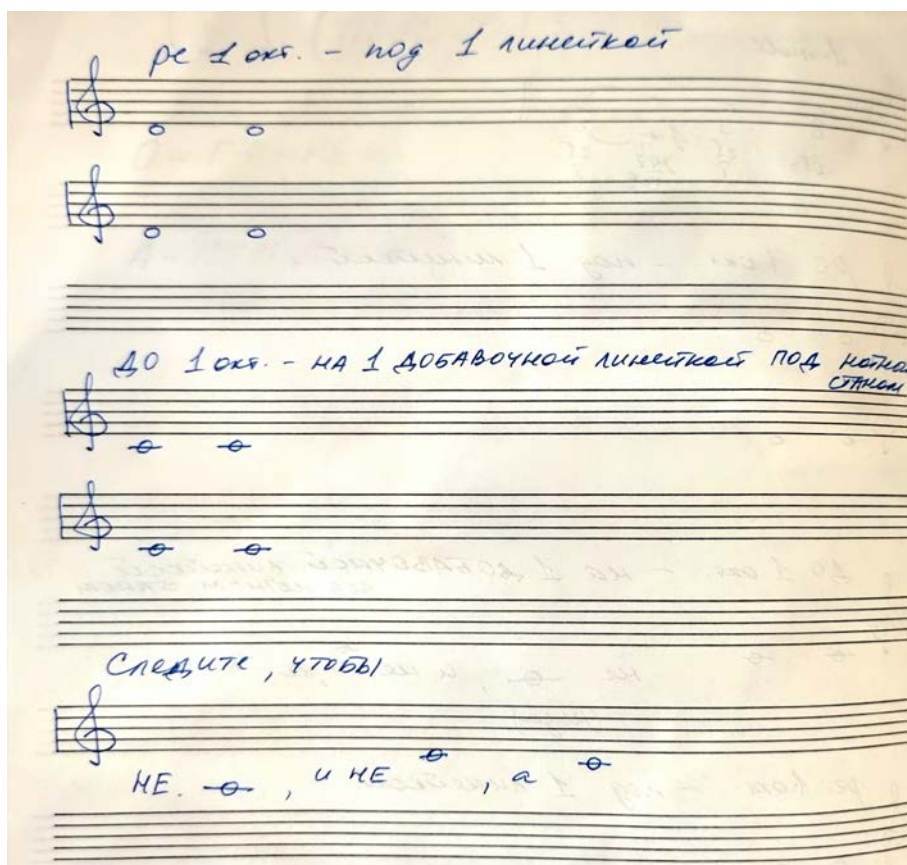 ре 1 окт. - под 1 линейкой
ДО 1 окт. - НА 1 ДОБАВОЧНОЙ линейкой ПОД нотном
СТАНОМ
Следите, чтобы
НЕ. , и НЕ , а